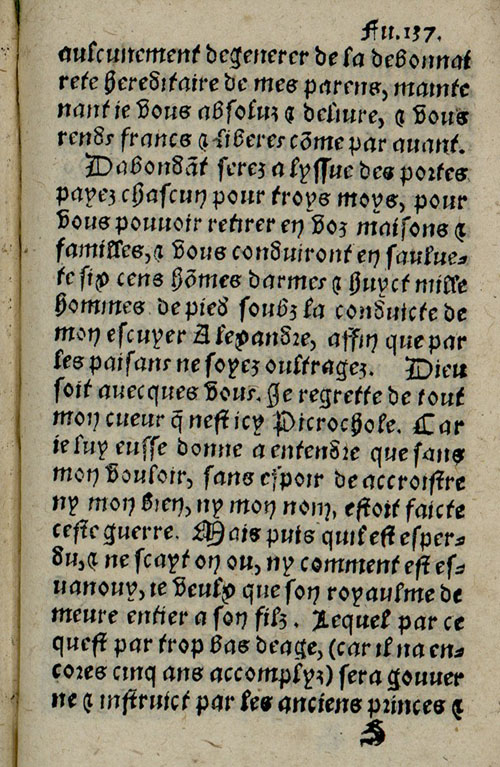 Fu.137.
aulcunement degenerer de la debonnai
rete hereditaire de mes parens, mainte
nant ie vous absoluz & deliure, & vous
rends francs & liberes cõme par auant.
Dabondãt serez a lyssue des portes
payez chascun pour troys moys, pour
vous pouuoir retirer en voz maisons &
familles, & vous conduiront en saulue-
te six cens hõmes darmes & huyct mille
hommes de pied soubz la conduicte de
mon escuyer Alexandre, affin que par
les paisans ne soyez oultragez. Dieu
soit auecques vous. Je regrette de tout
mon cueur q̃ nest icy Picrochole. Car
ie luy eusse donne a entendre que sans
mon vouloir, sans espoir de accroistre
ny mon bien, ny mon nom, estoit faicte
ceste guerre. Mais puis quil est esper-
du, & ne scayt on ou, ny comment est es-
uanouy, ie veulx que son royaulme de
meure entier a son filz. Lequel par ce
quest par trop bas deage, (car il na en-
cores cinq ans accomplyz) sera gouuer
ne & instruict par les anciens princes &
S